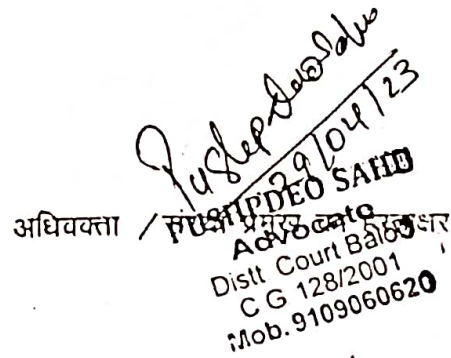 Pushpdeo Sahu
29/04/23
अधिवक्ता / संस्था प्रमुख का हस्ताक्षर
PUSHPDEO SAHU
Advocate
Distt. Court Balod
C G 128/2001
Mob. 9109060620